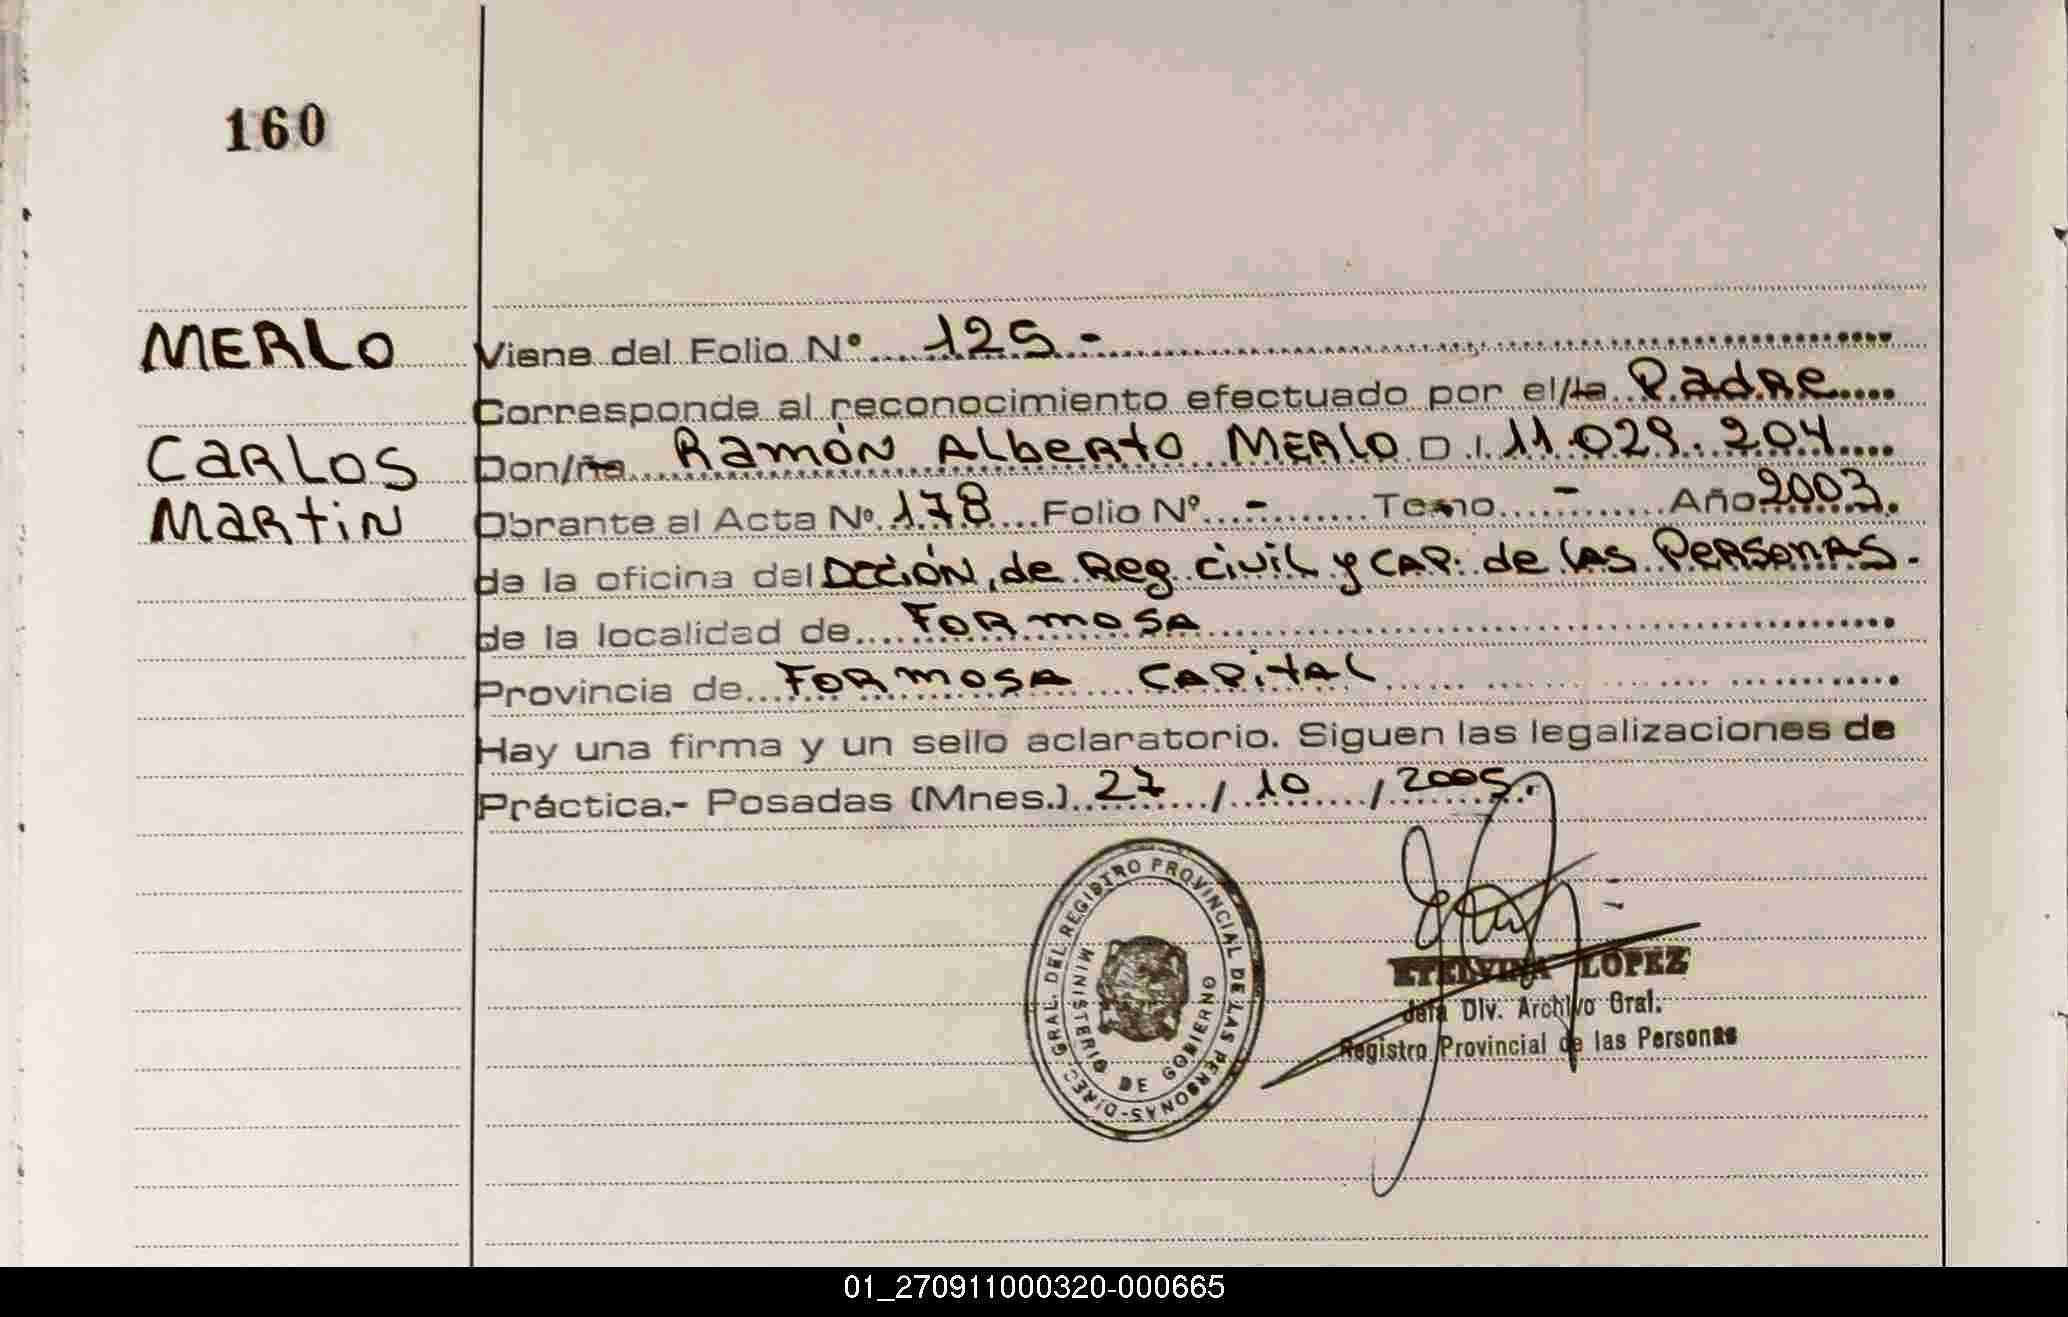 160
MERLO
Viene del Folio Nº 125 -
Corresponde al reconocimiento efectuado por el/la Padre
CARLOS
Don/ña Ramón Alberto Merlo D.I. 11.029.204
MARTIN
Obrante al Acta Nº 178 Folio Nº - Tomo - Año 2003.
de la oficina del Dcción, de Reg. civil y CAP. de las Personas.
de la localidad de Formosa
Provincia de Formosa Capital
Hay una firma y un sello aclaratorio. Siguen las legalizaciones de
Práctica.- Posadas (Mnes.) 27 / 10 / 2005.
DIREC. GRAL. DEL REGISTRO PROVINCIAL DE LAS PERSONAS-
MINISTERIO DE GOBIERNO
ETELVINA LOPEZ
Jefa Div. Archivo Gral.
Registro Provincial de las Personas
01_270911000320-000665